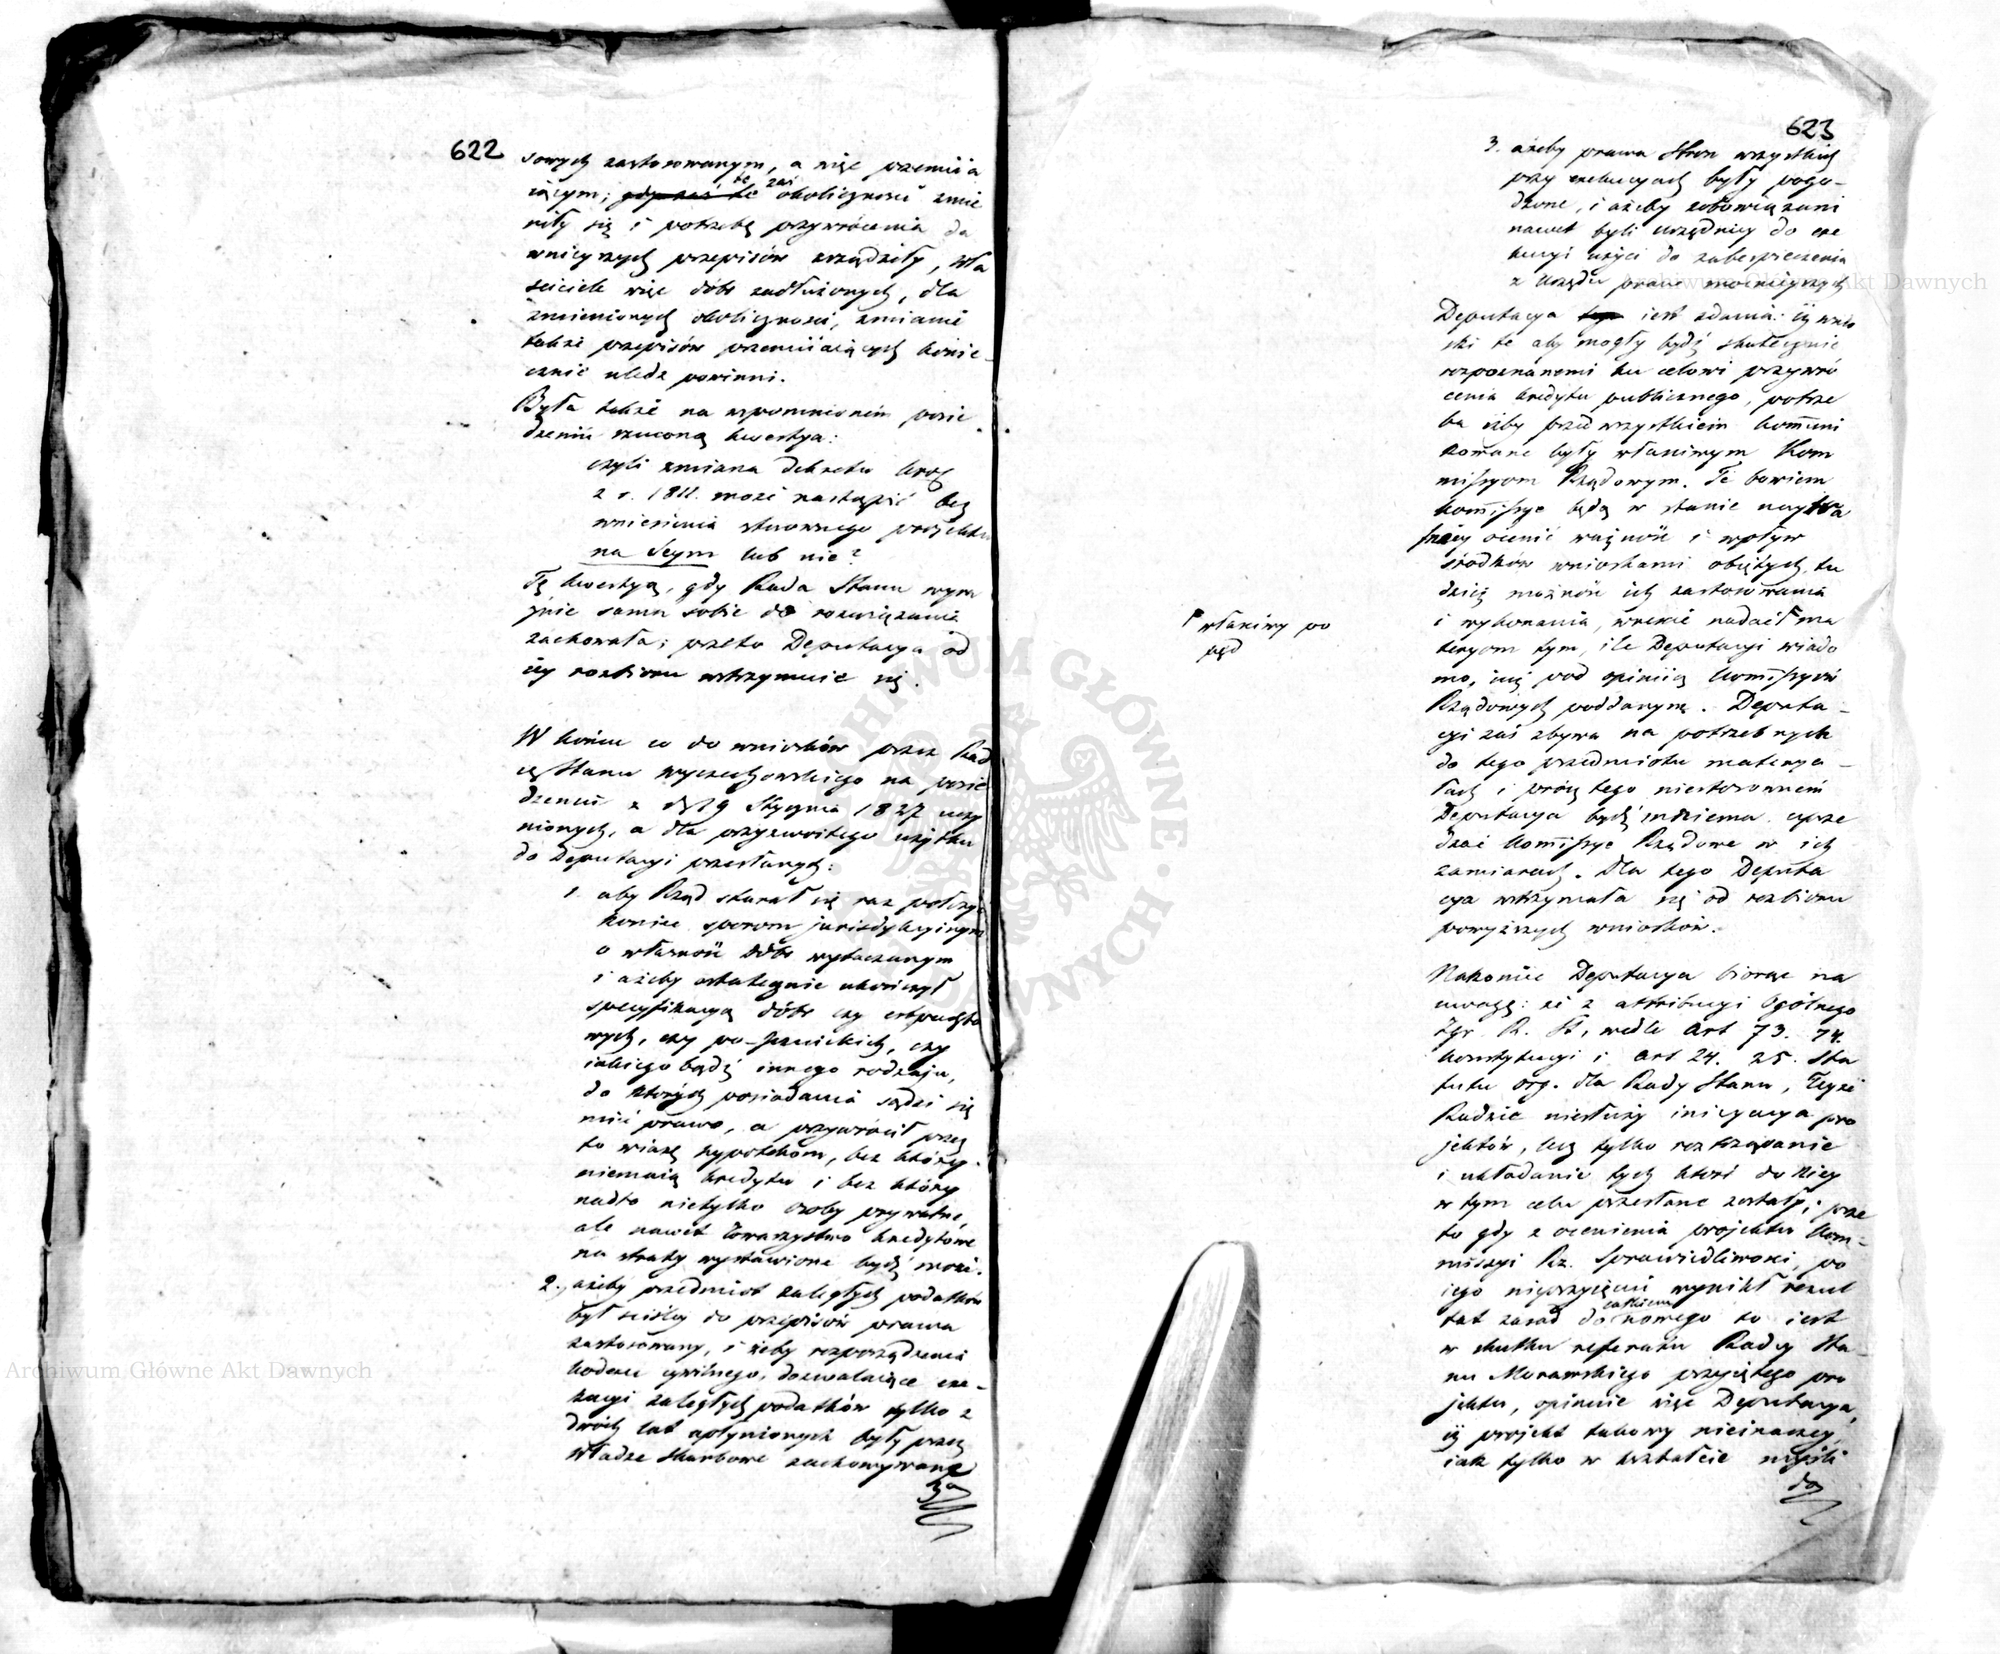 622
sowych zastosowanym, a więc przemiia
iącym; gdy zaś te te zaś okoliczności zmie
niły się i potrzebę przywrócenia da
wnieyszych przepisów zrządziły, wła
ściciele więc dóbr zadłużonych, dla
zmienionych okoliczności, zmianie
także przepisów przemiiaiących konie
cznie uledz powinni.
Była także na wspomnionem posie
dzeniu rzuconą kwestya:
czyli zmiana dekretu Król
z r. 1811. może nastąpić bez
wniesienia stosownego projektu
na Seym lub nie?
Tę kwestyą, gdy Rada Stanu wyra
źnie sama sobie do rozwiązania
zachowała; przeto Deputacya od
iey rozbioru wstrzymuie się.
W końcu co do wniosków przez Rad
cę Stanu Wyczechowskiego na posie
dzeniu z d. 19 Stycznia 1827 uczy
nionych, a dla przyzwoitego użytku
do Deputacyi przesłanych:
1. aby Rząd starał się raz położyć
koniec sporom jurisdykcyinym
o własność dóbr wytaczanym
i ażeby ostatecznie ukończył
specyfikacyą dóbr czy
wych, czy po-pruskich, czy
iakiego bądź innego rodzaju,
do których posiadania sądzi się
mieć prawo, a przywrócił przez
to wiarę hypotekom, bez którey
niemaią kredytu i bez którey
nadto nietylko osoby prywatne,
ale nawet Towarzystwo kredytowe
na straty wystawione bydź może.
2., ażeby przedmiot zaległych podatków
był ściśley do przepisów prawa
zastosowany, i żeby rozporządzenia
kodexu cywilnego, dozwalaiące exe-
kucyi zaległych podatków tylko z
dwóch lat upłynionych były przez
Władze Skarbowe zachowywane
3o
623
3. ażeby prawa stron wszystkich
przy exekucyach były pogo-
dzone, i ażeby zobowiązani
nawet byli urzędnicy do exe
kucyi użyci do zabezpieczenia
z urzędu praw mocnieyszych
Deputacya jest zdania: iż wnio
ski te aby mogły bydź skutecznie
rozpoznanemi ku celowi przywró
cenia kredytu publicznego, potrze
ba iżby przedwszystkiem kommuni
kowane były właściwym Kom
missyom Rządowym. Te bowiem
kommissye będą w stanie naytra
fniey ocenić ważność i wpływ
środków wnioskami obiętych, tu
dzież możność ich zastosowania
i wykonania, wreście nadać ma
teryom tym, ile Deputacyi wiado
mo, iuż pod opiniią Kommissyów
Rządowych poddanym. Deputa-
cyi zaś zbywa na potrzebnych
do tego przedmiotu materya-
łach i prócz tego niestosownem
Deputacya bydź mniema uprze
dzać Kommissye Rządowe w ich
zamiarach. Dla tego Deputa
cya wstrzymała się od rozbioru
powyższych wniosków.
Nakoniec Deputacya biorąc na
uwagę: że z attribucyi Ogólnego
Zgr. R. St., wedle Art 73. 74.
Konstytucyi i Art 24. 25. Sta
tutu org. dla Rady Stanu, Teyże
Radzie niesłuży inicyacya pro
jektów, lecz tylko roztrząsanie
i układanie tych które do Niey
w tym celu przesłane zostały; prze
to gdy z ocenienia projektu Kom-
missyi Rz. Sprawiedliwości, po
iego nieprzyięciu wynikł rezul
tat zasad do całkiem nowego to iest
w skutku referatu Radcy Sta-
nu Morawskiego przyiętego pro
jektu, opiniuie więc Deputacya,
iż projekt takowy nieinaczey,
iak tylko w kształcie myśli
do
właściwy po
pęd